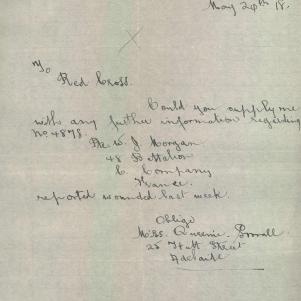 May 29th 18.
To
Red Cross.
Could you supply me
with any further information regarding
No. 4878.
Pte W. J. Morgan
48 Battalion
C Company
France.
reported wounded last week.
Oblige
Miss Queenie
25 Street
Adelaide